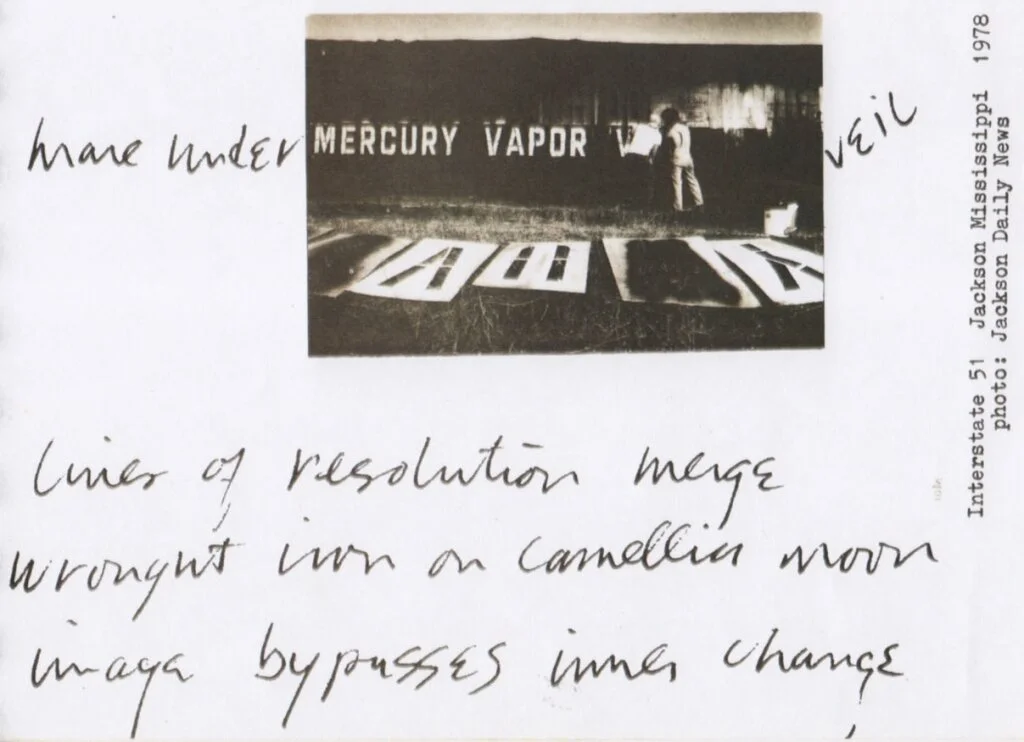 under MERCURY VAPOR V VEIL
lines of resolution merge
wrought iron on camellia moon
image bypasses inner change
Interstate 51 Jackson Mississippi 1978
photo: Jackson Daily News